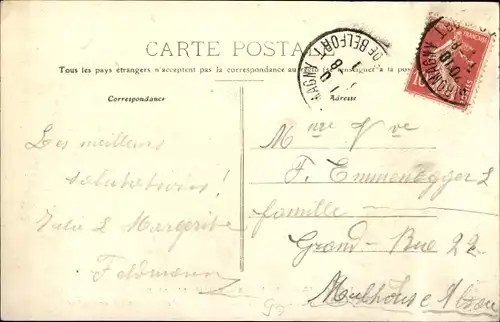 CARTE POSTALE
Tous les pays étrangers n'acceptent pas la correspondance au
Correspondance
Adresse
DE BELFORT
Les meilleurs
salutations!
Julie & Margerite
Feldmann
Mme Vve
F. Emmenegger &
famille
Grand-Rue 22
Mulhouse Alsace